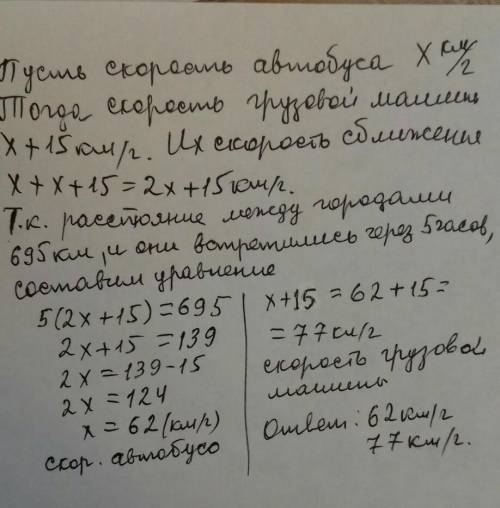 Пусть скорость автобуса х км/г
Тогда скорость грузовой машины
х+15 км/г. Их скорость сближения
х+х+15=2х+15 км/г.
Т.к. расстояние между городами
695 км, и они встретились через 5 часов,
составим уравнение
5(2х+15)=695
2х+15=139
2х=139-15
2х=124
х=62(км/г)
скор. автобусо
х+15=62+15=
=77км/г
скорость грузовой
машины
Ответ: 62км/г
77км/г.